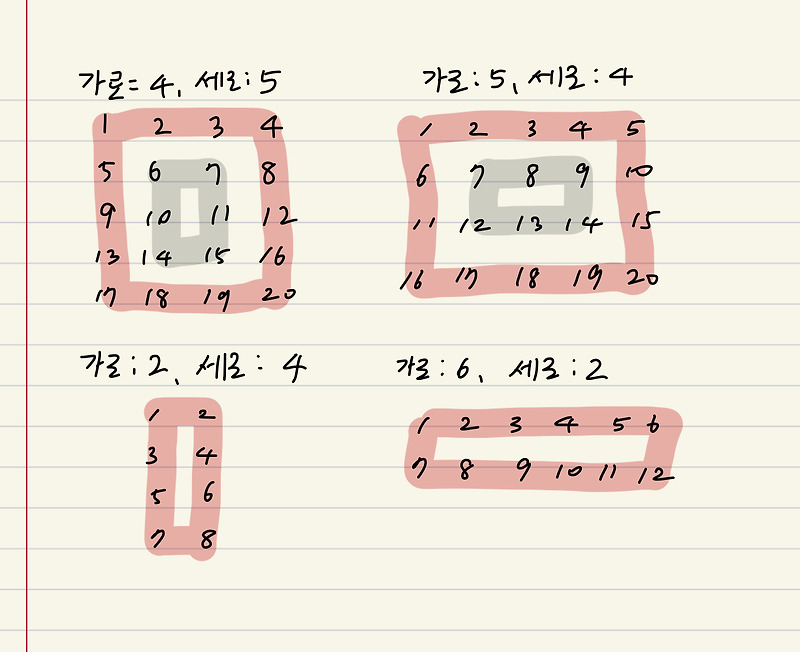 가로= 4, 세로: 5
1 2 3 4
5 6 7 8
9 10 11 12
13 14 15 16
17 18 19 20
가로: 5, 세로: 4
1 2 3 4 5
6 7 8 9 10
11 12 13 14 15
16 17 18 19 20
가로: 2, 세로: 4
1 2
3 4
5 6
7 8
가로: 6, 세로: 2
1 2 3 4 5 6
7 8 9 10 11 12